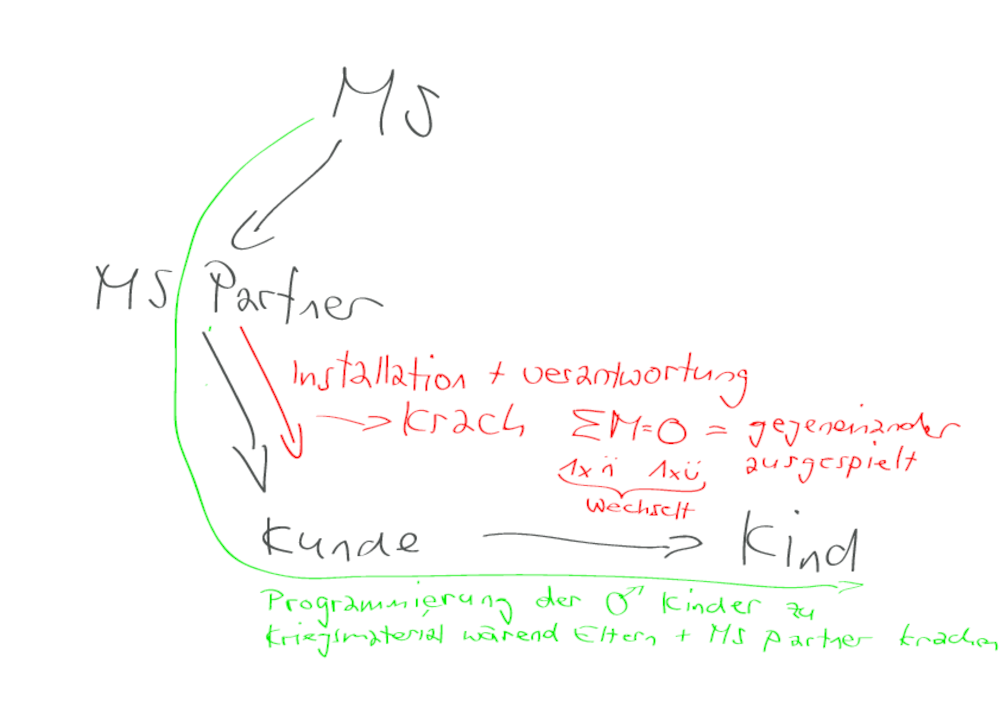 MS
MS Partner
Installation + verantwortung
→ Krach ΣM=0 = gegeneinander
ausgespielt
1x n̈ 1xü
wechselt
Kunde → Kind
Programmierung der ♂ Kinder zu
Kriegsmaterial wärend Eltern + MS Partner krachen